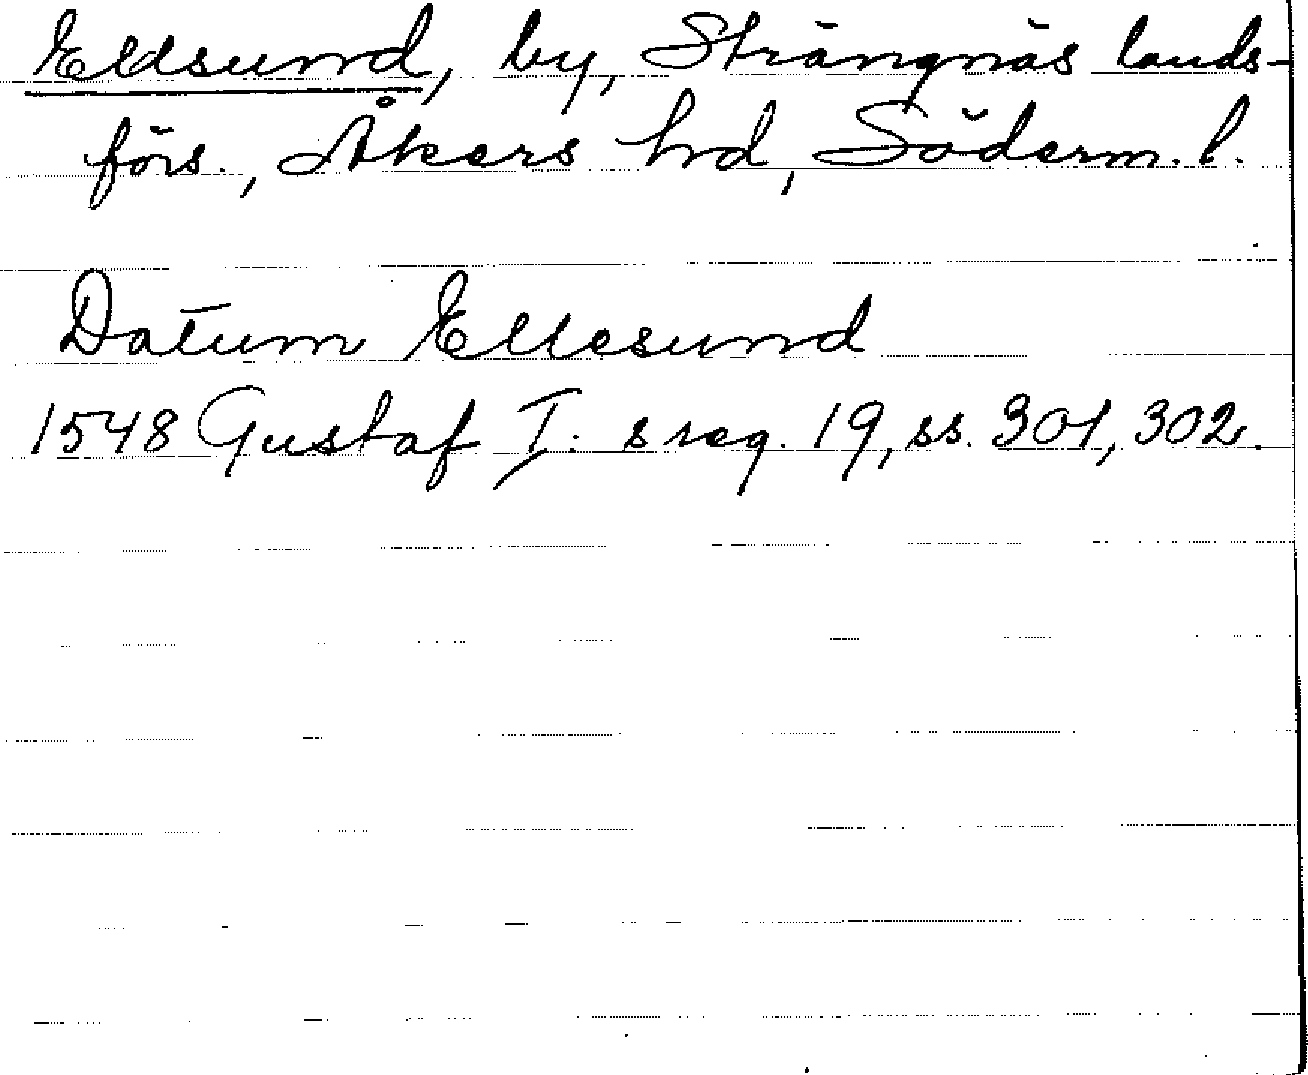 Eldsund, by, Strängnäs lands-
förs., Åkers hd, Söderm. l.
Datum Ellesund
1548 Gustaf I. s reg. 19, ss. 301, 302.